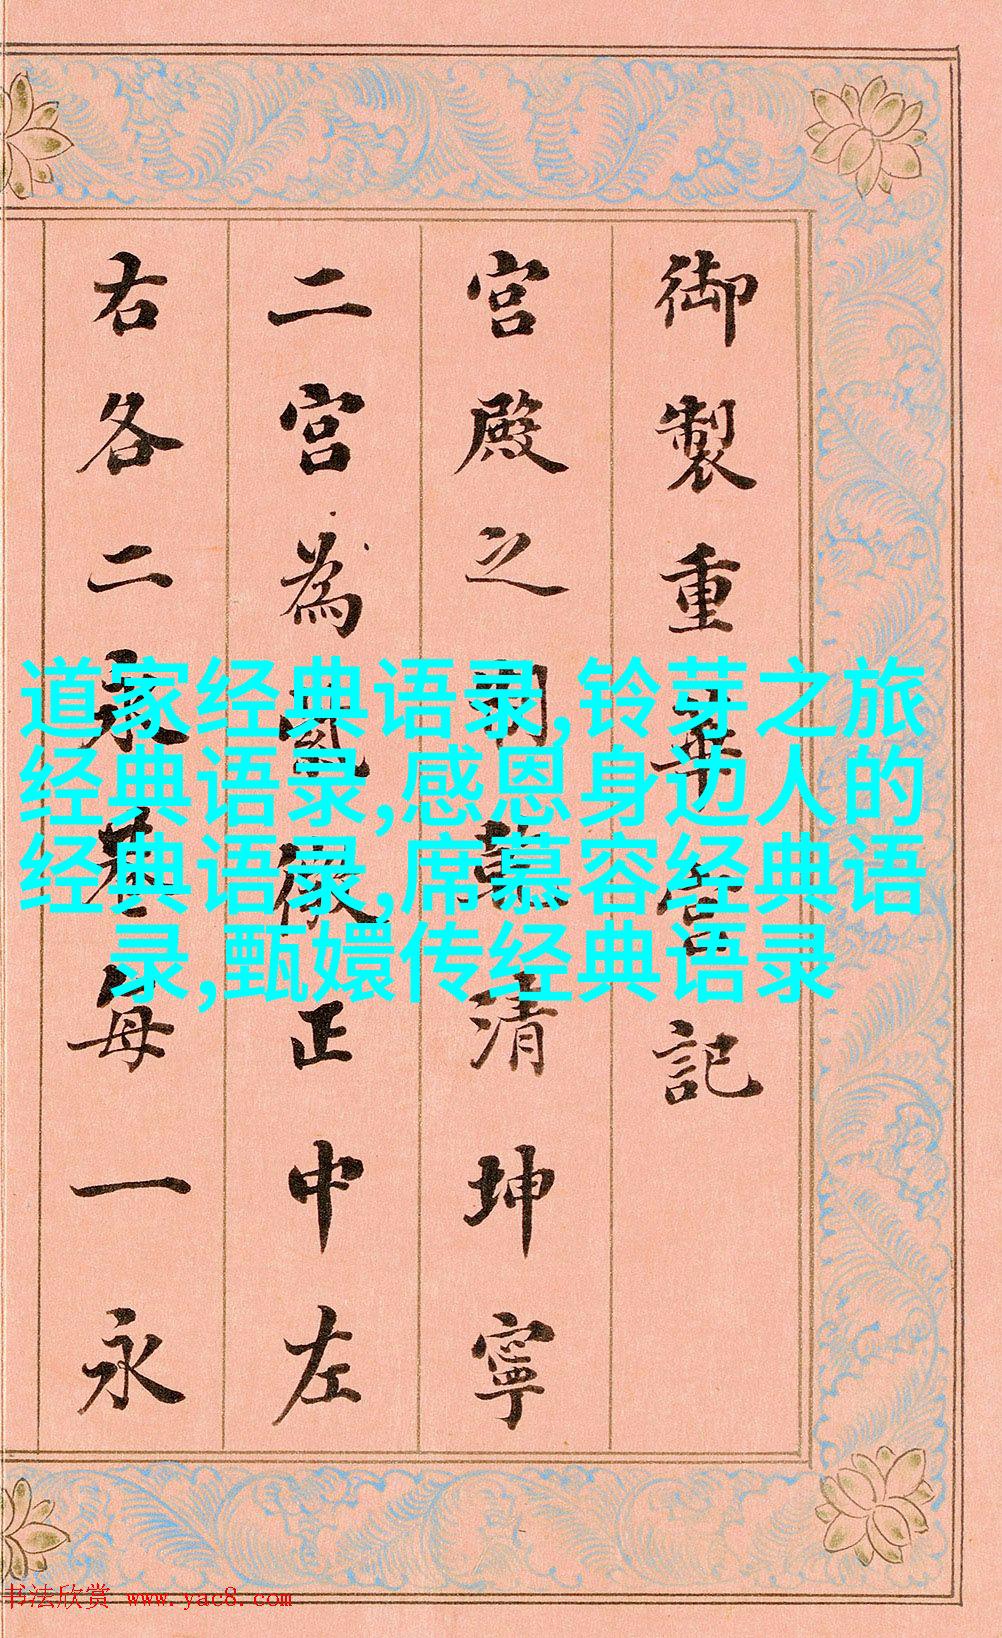 御製重華宮記
宮殿之清坤寧
二宮為正中左
右各二永巷每一永
道家经典语录,铃芽之旅
经典语录,感恩身边人的
经典语录,席慕容经典语
录,甄嬛传经典语录
书法欣赏 www.yac8.com